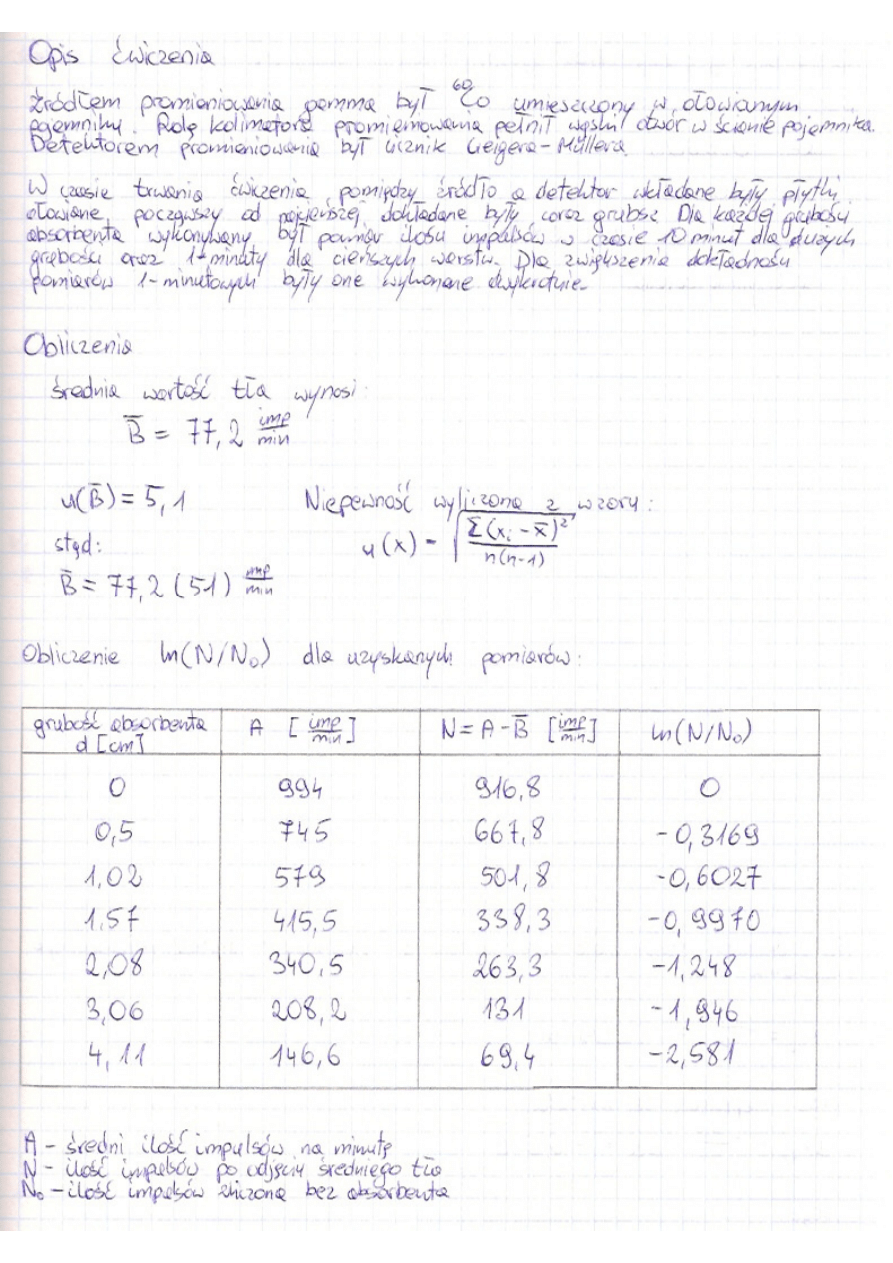 Opis ćwiczenia
Źródłem promieniowania gamma był ⁶⁰Co umieszczony w ołowianym
pojemniku. Rolę kolimatora promieniowania pełnił wąski otwór w ścianie pojemnika.
Detektorem promieniowania był licznik Geigera-Müllera
W czasie trwania ćwiczenia pomiędzy źródło a detektor wkładane były płytki
ołowiane, począwszy od najcieńszej, dokładane były coraz grubsze Dla każdej grubości
absorbenta wykonywany był pomiar ilości impulsów w czasie 10 minut dla dużych
grubości oraz 1-minuty dla cieńszych warstw. Dla zwiększenia dokładności
pomiarów 1-minutowych były one wykonane dwukrotnie.
Obliczenia
Średnia wartość tła wynosi:
B̅ = 77,2 imp/min
u(B̅) = 5,1 Niepewność wyliczona z wzoru:
stąd: u(x) = √(Σ(xᵢ - x̅)²/n(n-1))
B̅ = 77,2 (51) imp/min
Obliczenie ln(N/N₀) dla uzyskanych pomiarów:
grubość absorbenta d [cm] A [imp/min] N = A - B̅ [imp/min] ln(N/N₀)
0 994 916,8 0
0,5 745 667,8 -0,3169
1,02 579 501,8 -0,6027
1.57 415,5 338,3 -0,9970
2,08 340,5 263,3 -1,248
3,06 208,2 131 -1,946
4,11 146,6 69,4 -2,581
A - średni ilość impulsów na minutę
N - ilość impulsów po odjęciu średniego tła
N₀ - ilość impulsów zliczona bez absorbenta